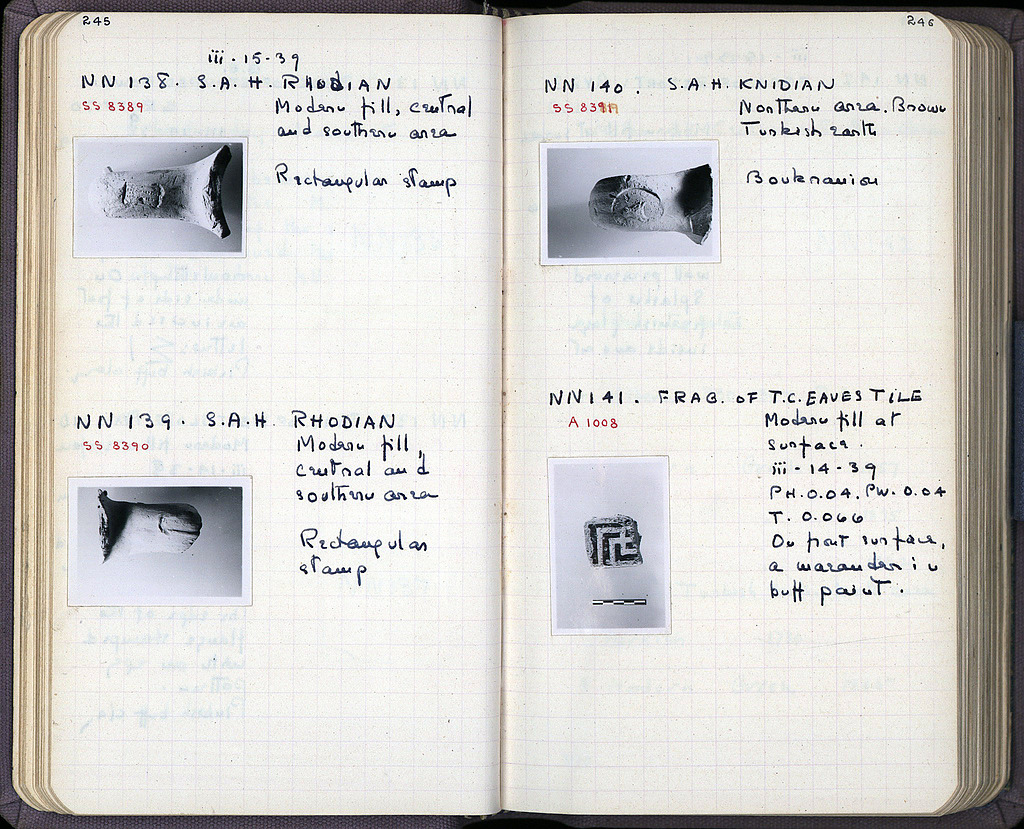 245
iii-15-39
NN 138. S.A.H. RHODIAN
SS 8389
Modern fill, central
and southern area
Rectangular stamp
NN 139. S.A.H. RHODIAN
SS 8390
Modern fill,
central and
southern area
Rectangular
stamp
246
NN 140. S.A.H. KNIDIAN
Northern area. Brown
Turkish earth
Boukranion
NN 141. FRAG. OF T.C. EAVES TILE
A 1008
Modern fill at
surface.
iii-14-39
PH. 0.04. PW. 0.04
T. 0.066
On front surface,
a maeander in
buff paint.